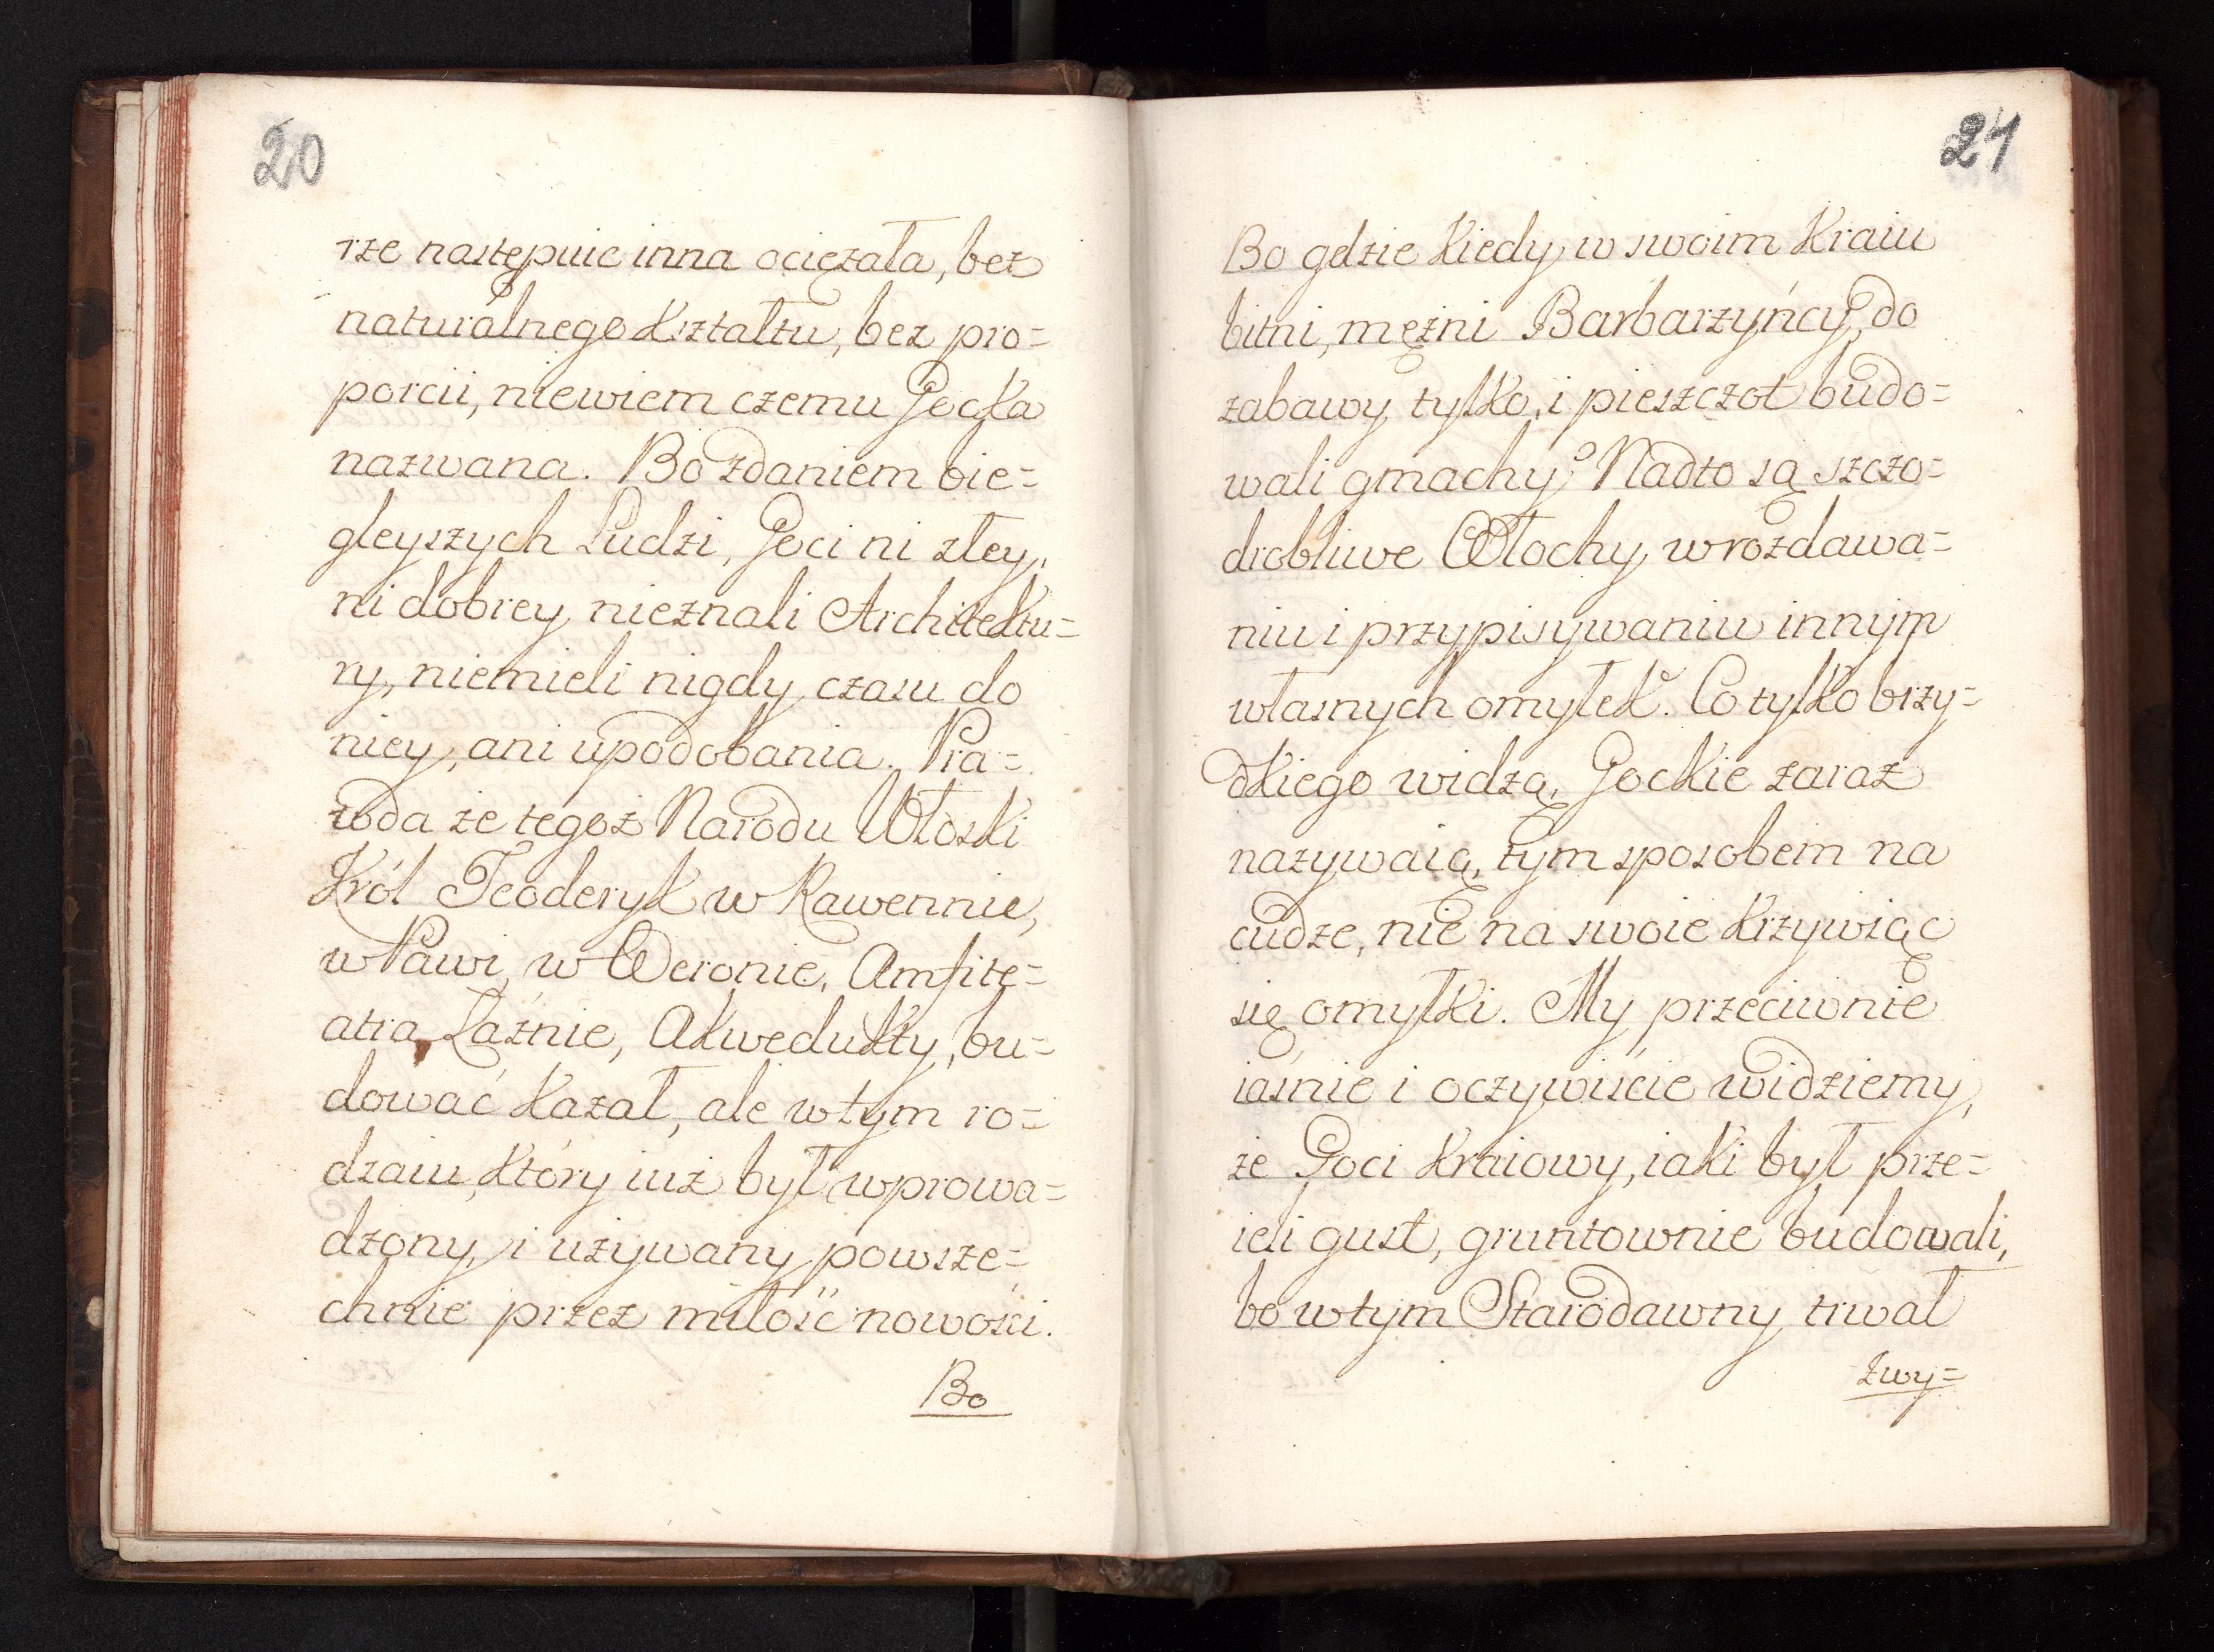 20
rze następuie inna ociężała, bez
naturalnego Kształtu, bez pro=
porcii, niewiem czemu Gocka
nazwana. Bo zdaniem bie=
gleyszych Ludzi, Goci ni złey,
ni dobrey nieznali Architektu=
ry, niemieli nigdy czasu do
niey, ani upodobania. Pra=
wda że tegoż Narodu Włoski
Król Teoderyk w Rawennie,
w Pawi, w Weronie, Amfite=
atra, Łaźnie, Akwedukty, bu=
dować Kazał, ale w tym ro=
dzaiu, Który iuż był wprowa=
dzony, i używany powsze=
chnie przez miłość nowości.
Bo
21
Bo gdzie Kiedy w swoim Kraiu
bitni, mężni Barbarzyńcy, do
zabawy tylko, i pieszczot budo=
wali gmachy? Nadto są szczo=
drobliwe Włochy w rozdawa=
niu i przypisywaniu innym
własnych omyłek. Co tylko brzy=
dkiego widzą, Gockie zaraz
nazywaią, tym sposobem na
cudze, nie na swoie Krzywiąc
się omyłki. My przeciwnie
iaśnie i oczywiście widziemy,
że Goci Kraiowy, iaki był prze=
ieli gust, gruntownie budowali,
bo w tym Starodawny trwał
zwy=